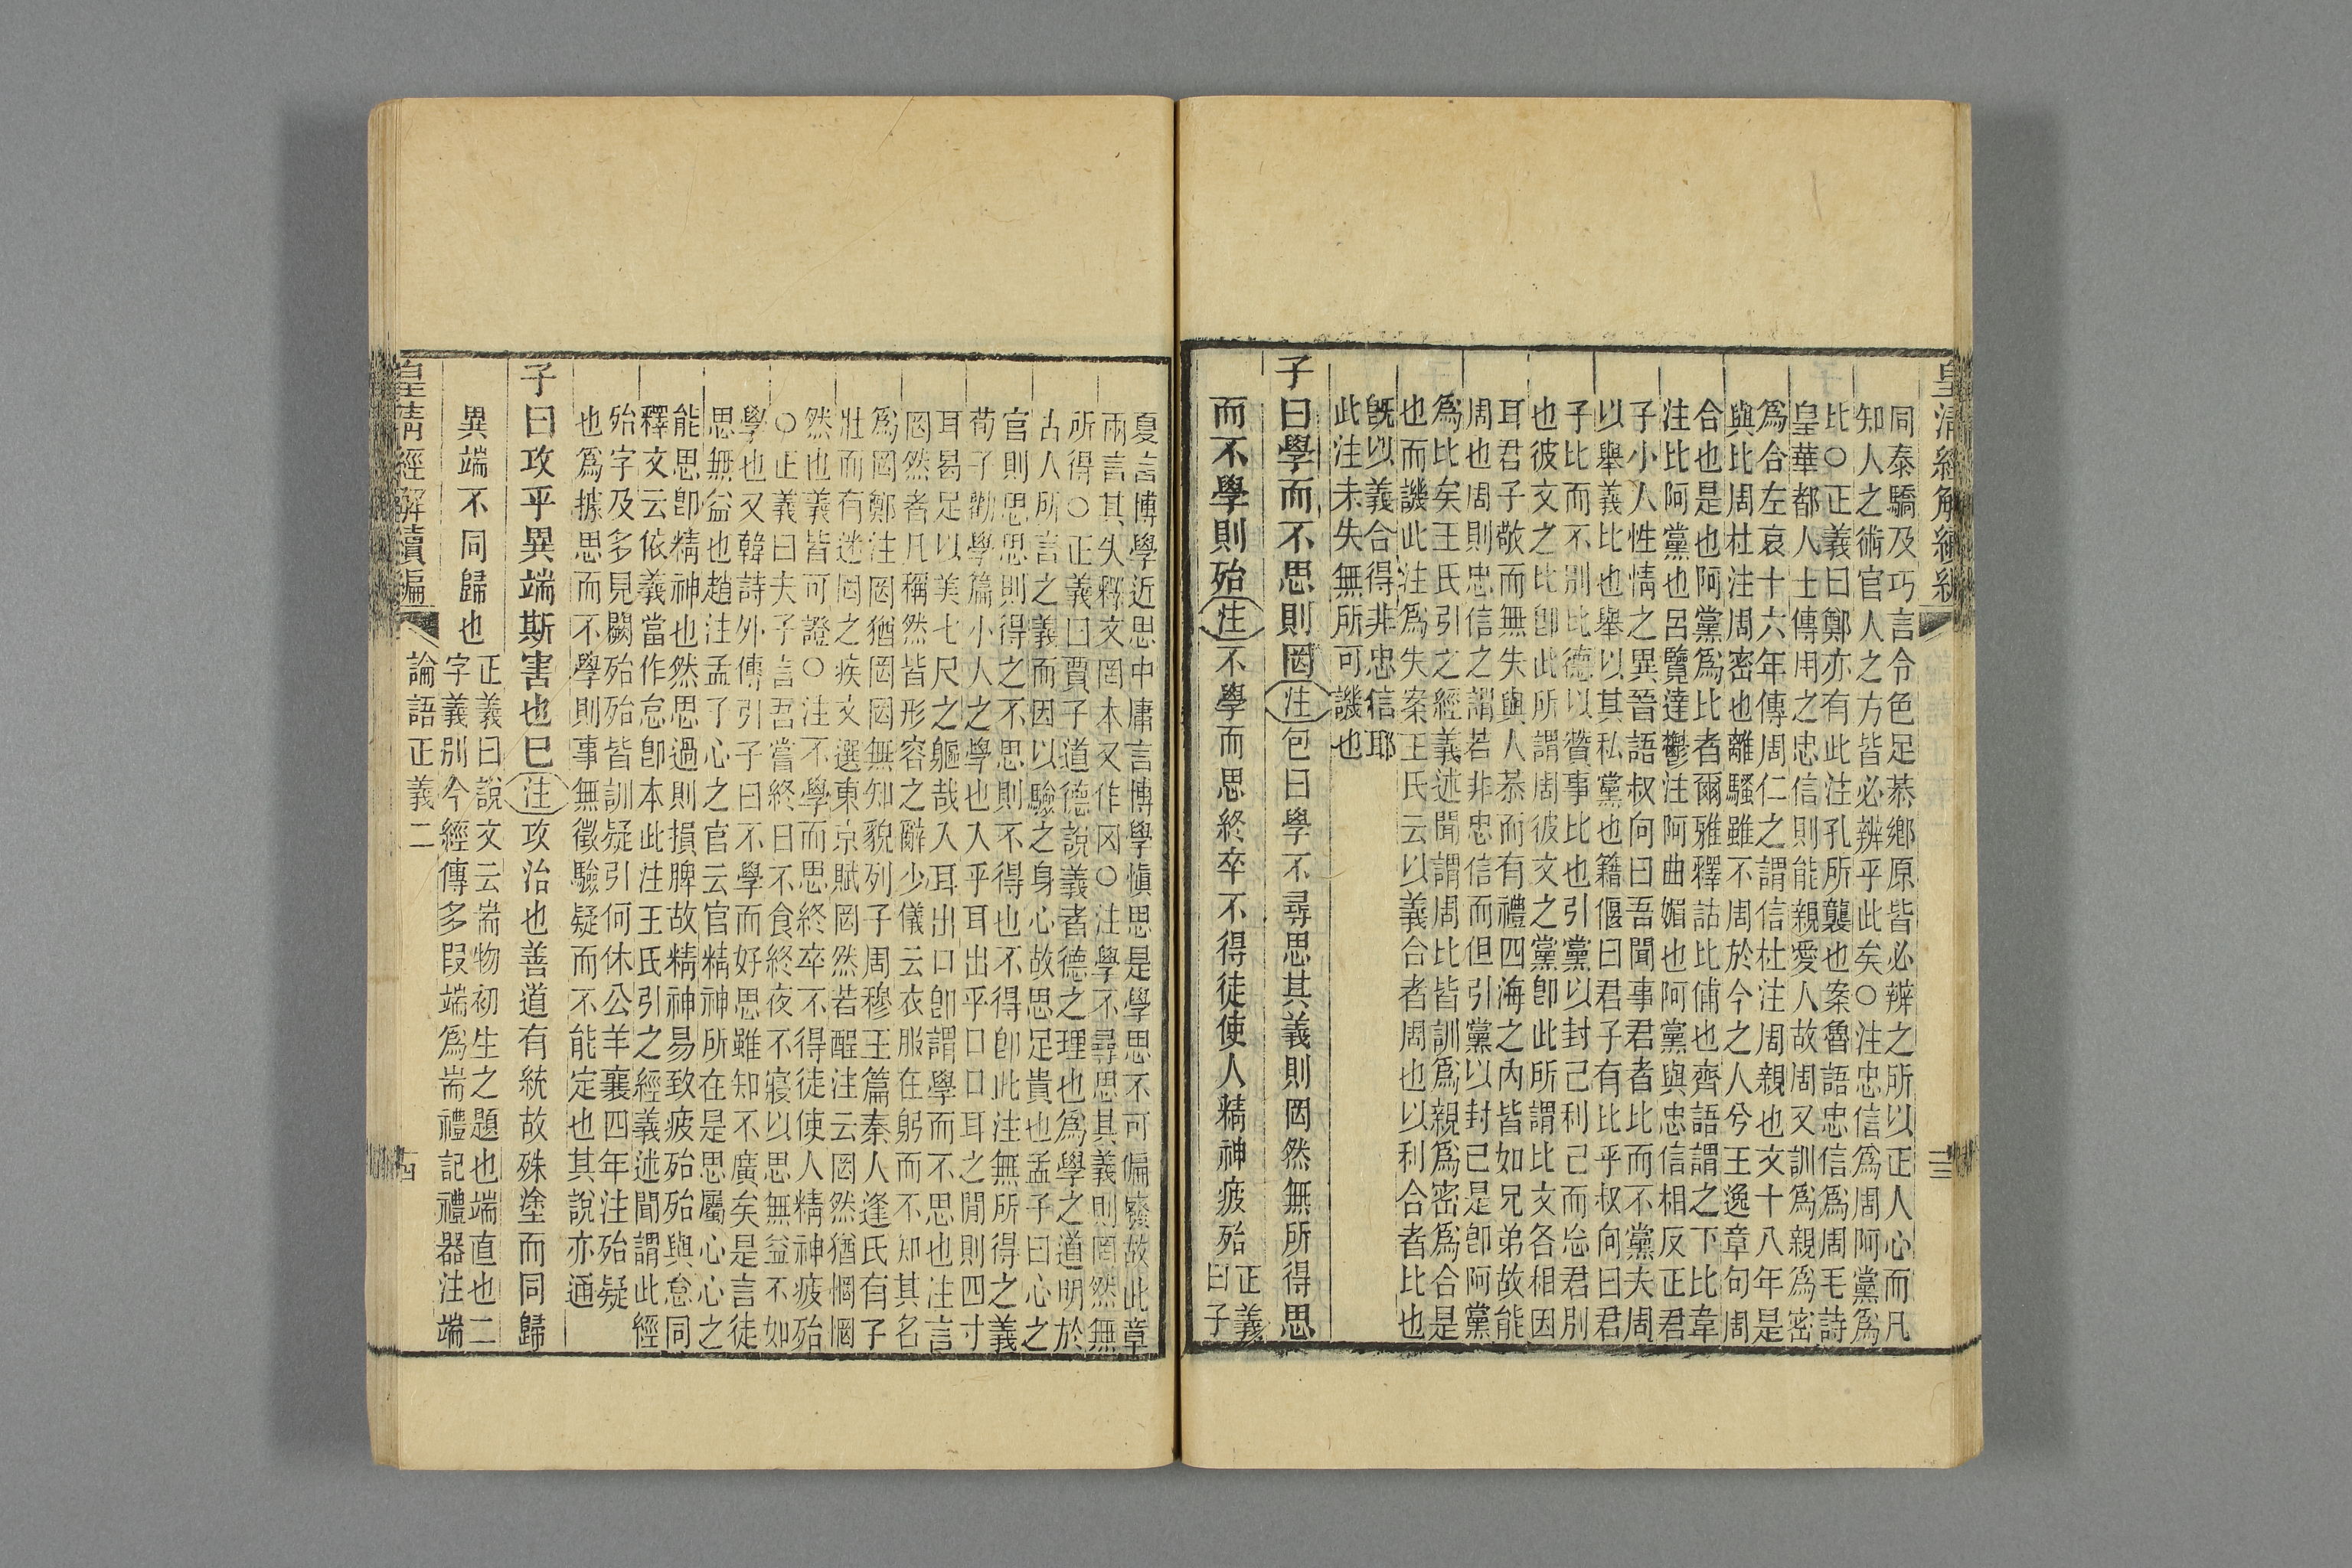 皇清經解續編
同泰驕及巧言令色足恭鄉原皆必辨之所以正人心而凡
知人之術官人之方皆必辨乎此矣○注忠信爲周阿黨爲
比○正義曰鄭亦有此注孔所襲也案魯語忠信爲周毛詩
皇華都人士傳用之忠信則能親愛人故周又訓爲親爲密
爲合左哀十六年傳周仁之謂信杜注周親也文十八年是
與比周杜注周密也離騷雖不周於今之人兮王逸章句周
合也是也阿黨爲比者爾雅釋詁比俌也齊語謂之下比韋
注比阿黨也呂覽達鬱注阿曲媚也阿黨與忠信相反正君
子小人性情之異晉語叔向曰吾聞事君者比而不黨夫周
以舉義比也舉以其私黨也籍偃曰君子有比乎叔向曰君
子比而不別比德以贊事比也引黨以封己利己而忘君別
也彼文之比卽此所謂周彼文之黨卽此所謂比文各相因
耳君子敬而無失與人恭而有禮四海之內皆如兄弟故能
周也周則忠信之謂若非忠信而但引黨以封己是卽阿黨
爲比矣王氏引之經義述聞謂周比皆訓爲親爲密爲合是
也而譏此注爲失案王氏云以義合者周也以利合者比也
旣以義合得非忠信耶
此注未失無所可譏也
子曰學而不思則罔注包曰學不尋思其義則罔然無所得思
而不學則殆注不學而思終卒不得徒使人精神疲殆
正義
曰子
夏言博學近思中庸言博學愼思是學思不可偏廢故此章
兩言其失釋文罔本又作冈○注學不尋思其義則罔然無
所得○正義曰賈子道德說義者德之理也爲學之道明於
古人所言之義而因以驗之身心故思足貴也孟子曰心之
官則思思則得之不思則不得也不得卽此注無所得之義
荀子勸學篇小人之學也入乎耳出乎口口耳之閒則四寸
耳曷足以美七尺之軀哉入耳出口卽謂學而不思也注言
罔然者凡稱然皆形容之辭少儀云衣服在躬而不知其名
爲罔鄭注罔猶罔罔無知貌列子周穆王篇秦人逢氏有子
壯而有迷罔之疾文選東京賦罔然若酲注云罔然猶惘惘
然也義皆可證○注不學而思終卒不得徒使人精神疲殆
○正義曰夫子言吾嘗終日不食終夜不寢以思無益不如
學也又韓詩外傳引子曰不學而好思雖知不廣矣是言徒
思無益也趙注孟子心之官云官精神所在是思屬心心之
能思卽精神也然思過則損脾故精神易致疲殆殆與怠同
釋文云依義當作怠卽本此注王氏引之經義述聞謂此經
殆字及多見闕殆殆皆訓疑引何休公羊襄四年注殆疑
也爲據思而不學則事無徵驗疑而不能定也其說亦通
子曰攻乎異端斯害也已注攻治也善道有統故殊塗而同歸
異端不同歸也
正義曰說文云耑物初生之題也端直也二
字義別今經傳多叚端爲耑禮記禮器注端
皇清經解續編
論語正義二